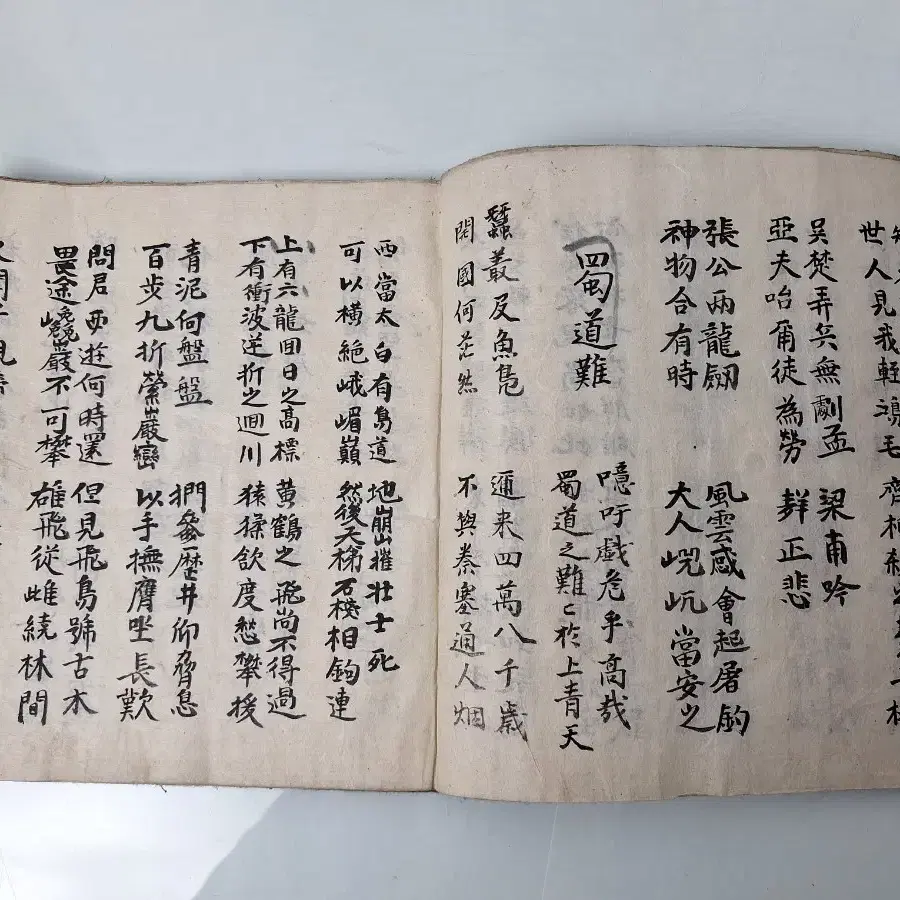 世人見我輕鴻毛
吳楚弄兵無劇孟
亞夫咍爾徒為勞
梁甫吟
聲正悲
張公兩龍劒
神物合有時
風雲感會起屠釣
大人㞾屼當安之
蜀道難
噫吁戲危乎高哉
蜀道之難〻於上青天
蠶叢及魚鳧
開國何茫然
邇來四萬八千歲
不與秦塞通人烟
西當太白有鳥道
可以橫絶峨嵋巓
地崩山摧壯士死
然後天梯石棧相鉤連
上有六龍回日之高標
下有衝波逆折之迴川
黃鶴之飛尚不得過
猿猱欲度愁攀援
青泥何盤盤
百步九折縈巖巒
捫參歷井仰脅息
以手撫膺坐長歎
問君西遊何時還
畏途巉巖不可攀
但見飛鳥號古木
雄飛從雌繞林間